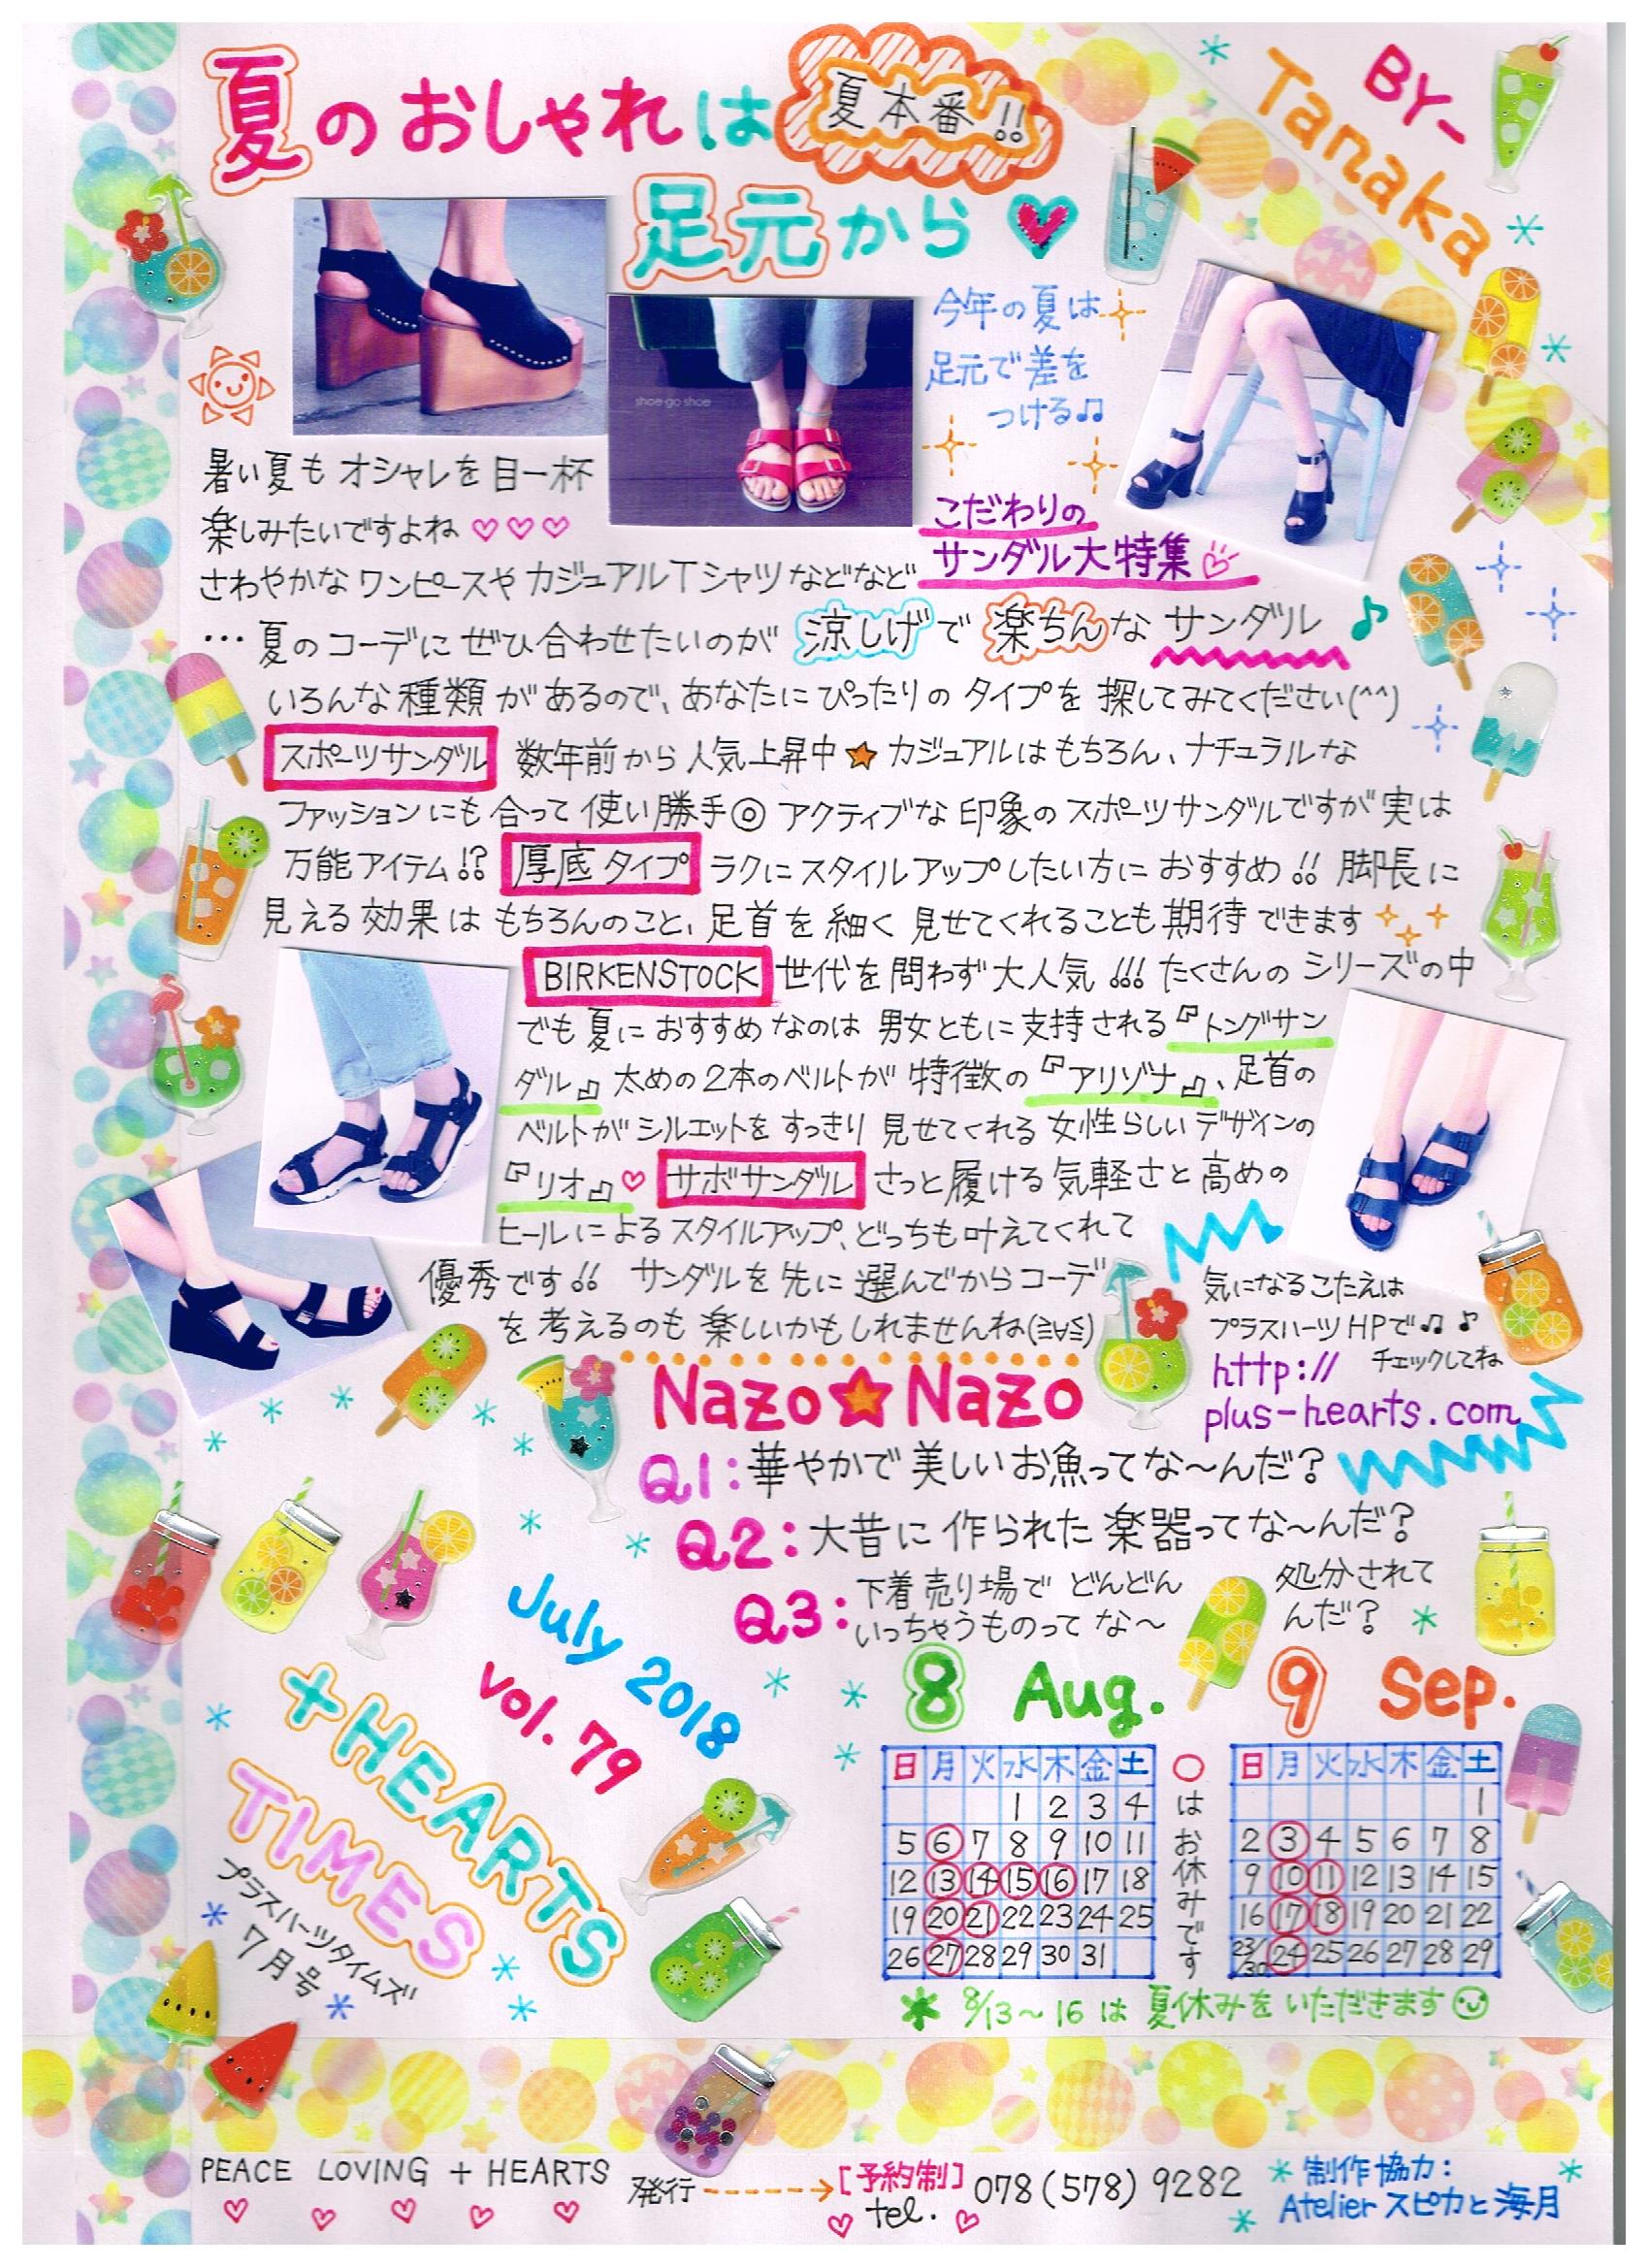 夏のおしゃれは
夏本番!!
足元から
BY-
Tanaka
今年の夏は
足元で差を
つける♫
shoe·go·shoe
こだわりの
サンダル大特集
暑い夏も オシャレを 目一杯
楽しみたいですよね ♡♡♡
さわやかな ワンピースや カジュアルTシャツ などなど
… 夏の コーデに ぜひ 合わせたいのが 涼しげで 楽ちんな サンダル ♪
いろんな 種類 が あるので、あなたに ぴったりの タイプを 探してみてください(^^)
スポーツサンダル 数年前から 人気上昇中★ カジュアルは もちろん、ナチュラルな
ファッションにも 合って 使い勝手◎ アクティブな 印象の スポーツサンダルですが 実は
万能アイテム!? 厚底タイプ ラクに スタイルアップしたい方に おすすめ!! 脚長に
見える 効果は もちろんのこと、足首を 細く 見せてくれることも 期待できます
BIRKENSTOCK 世代を 問わず 大人気!!! たくさんの シリーズの中
でも 夏に おすすめ なのは 男女ともに 支持される『トングサン
ダル』 太めの 2本のベルトが 特徴の『アリゾナ』、足首の
ベルトが シルエットを すっきり 見せてくれる 女性らしい デザインの
『リオ』♡ サボサンダル さっと 履ける 気軽さと 高めの
ヒールによる スタイルアップ、どっちも 叶えてくれて
優秀です!! サンダルを 先に 選んでから コーデ
を 考えるのも 楽しいかもしれませんね(≧∀≦)
気になる こたえは
プラスハーツ HPで♫♪
チェックしてね
http://
plus-hearts.com
Nazo★Nazo
Q1:華やかで 美しい お魚って な〜んだ?
Q2:大昔に 作られた 楽器って な〜んだ?
Q3:下着 売り場で どんどん 処分されて
いっちゃうものって な〜んだ?
July 2018
vol. 79
+HEARTS
TIMES
プラスハーツタイムズ
7月号
8 Aug.
日 月 火 水 木 金 土
1 2 3 4
5 6 7 8 9 10 11
12 13 14 15 16 17 18
19 20 21 22 23 24 25
26 27 28 29 30 31
○はお休みです
9 Sep.
日 月 火 水 木 金 土
1
2 3 4 5 6 7 8
9 10 11 12 13 14 15
16 17 18 19 20 21 22
23/30 24 25 26 27 28 29
8/13〜16 は 夏休みを いただきます
PEACE LOVING + HEARTS
発行
[予約制]
tel. 078(578)9282
制作協力:
Atelier スピカと海月